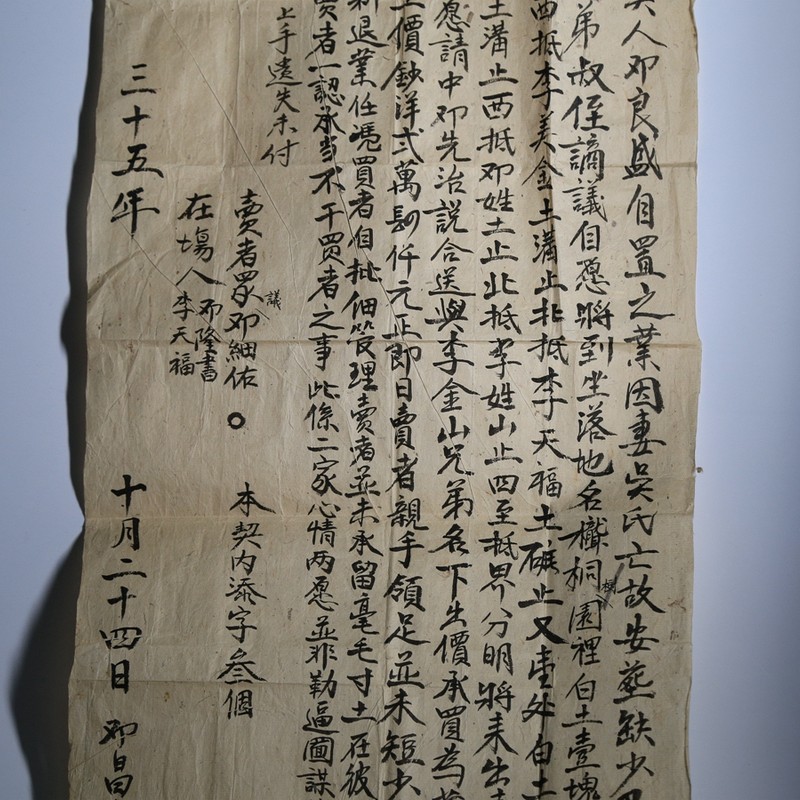 人邓良盛自置之業因妻吳氏亡故安葬缺少
弟叔侄謫議自愿將到坐落地名桐園裡白土壹塊
西抵李美金土溝止北抵李天福土磡止又壹处白土
土溝止西抵邓姓土止北抵李姓山止四至抵界分明將來出
愿請中邓先治説合送與李金山兄弟名下出價承買為
價鈔洋弍萬仟元正即日賣者親手領足並未短少
退業任凴買者自批佃管理賣者並未承留毫毛寸土在彼
賣者一認承当不干買者之事此係二家心情两愿並非勒逼圖謀
上手遺失未付
賣者眾議邓細佑 本契内添字叁個
在塲人 邓隆書 李天福
三十五年 十月二十四日 邓昌